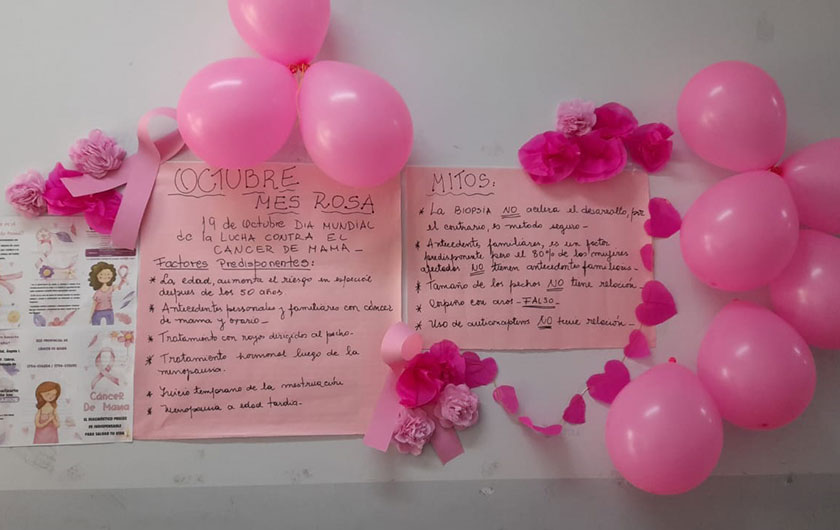 OCTUBRE
MES ROSA
19 de Octubre DIA MUNDIAL
de la LUCHA CONTRA EL
CANCER DE MAMA
Factores Predisponentes:
* La edad, aumenta el riesgo en especial
despues de los 50 años
* Antecedentes personales y familiares con cáncer
de mama y ovario
* Tratamiento con rayos dirigidos al pecho.
* Tratamiento hormonal luego de la
menopausa.
* Inicio temprano de la menstruación
* Menopausia a edad tardia.
MITOS:
* La BIOPSIA NO acelera el desarrollo, por
el contrario, es metodo seguro
* Antecedente familiares, es un factor
predisponente pero el 80% de las mujeres
afectadas NO tienen antecedentes familiares
* Tamaño de los pechos NO tiene relación.
* Corpiño con aros - FALSO
* Uso de anticonceptivos NO tiene relación
Cáncer
De Mama
EL DIAGNÓSTICO PRECOZ
ES INDISPENSABLE
PARA SALVAR TU VIDA